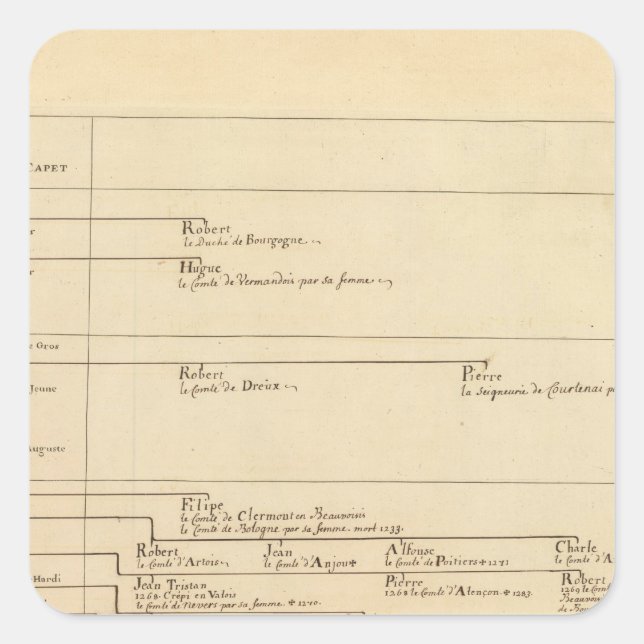 CAPET
Robert
le Duché de Bourgogne
Hugue
le Comté de Vermandois par sa femme
Gros
Robert
le Comté de Dreux
Pierre
la Seigneurie de Courtenai
Jeune
Auguste
Filipe
le Comté de Clermont en Beauvoisis
le Comté de Bologne par sa femme. mort 1233.
Robert
le Comté d'Artois
Jean
le Comté d'Anjou ✝
Alfonse
le Comté de Poitiers ✝ 1271
Charle
le Comté d'A
Hardi
Jean Tristan
1268. Crépi en Valois
le Comté de Nevers par sa femme. ✝ 1270.
Pierre
1268 le Comté d'Alençon ✝ 1283.
Robert
1269 le Com
Beauvois
de Bou